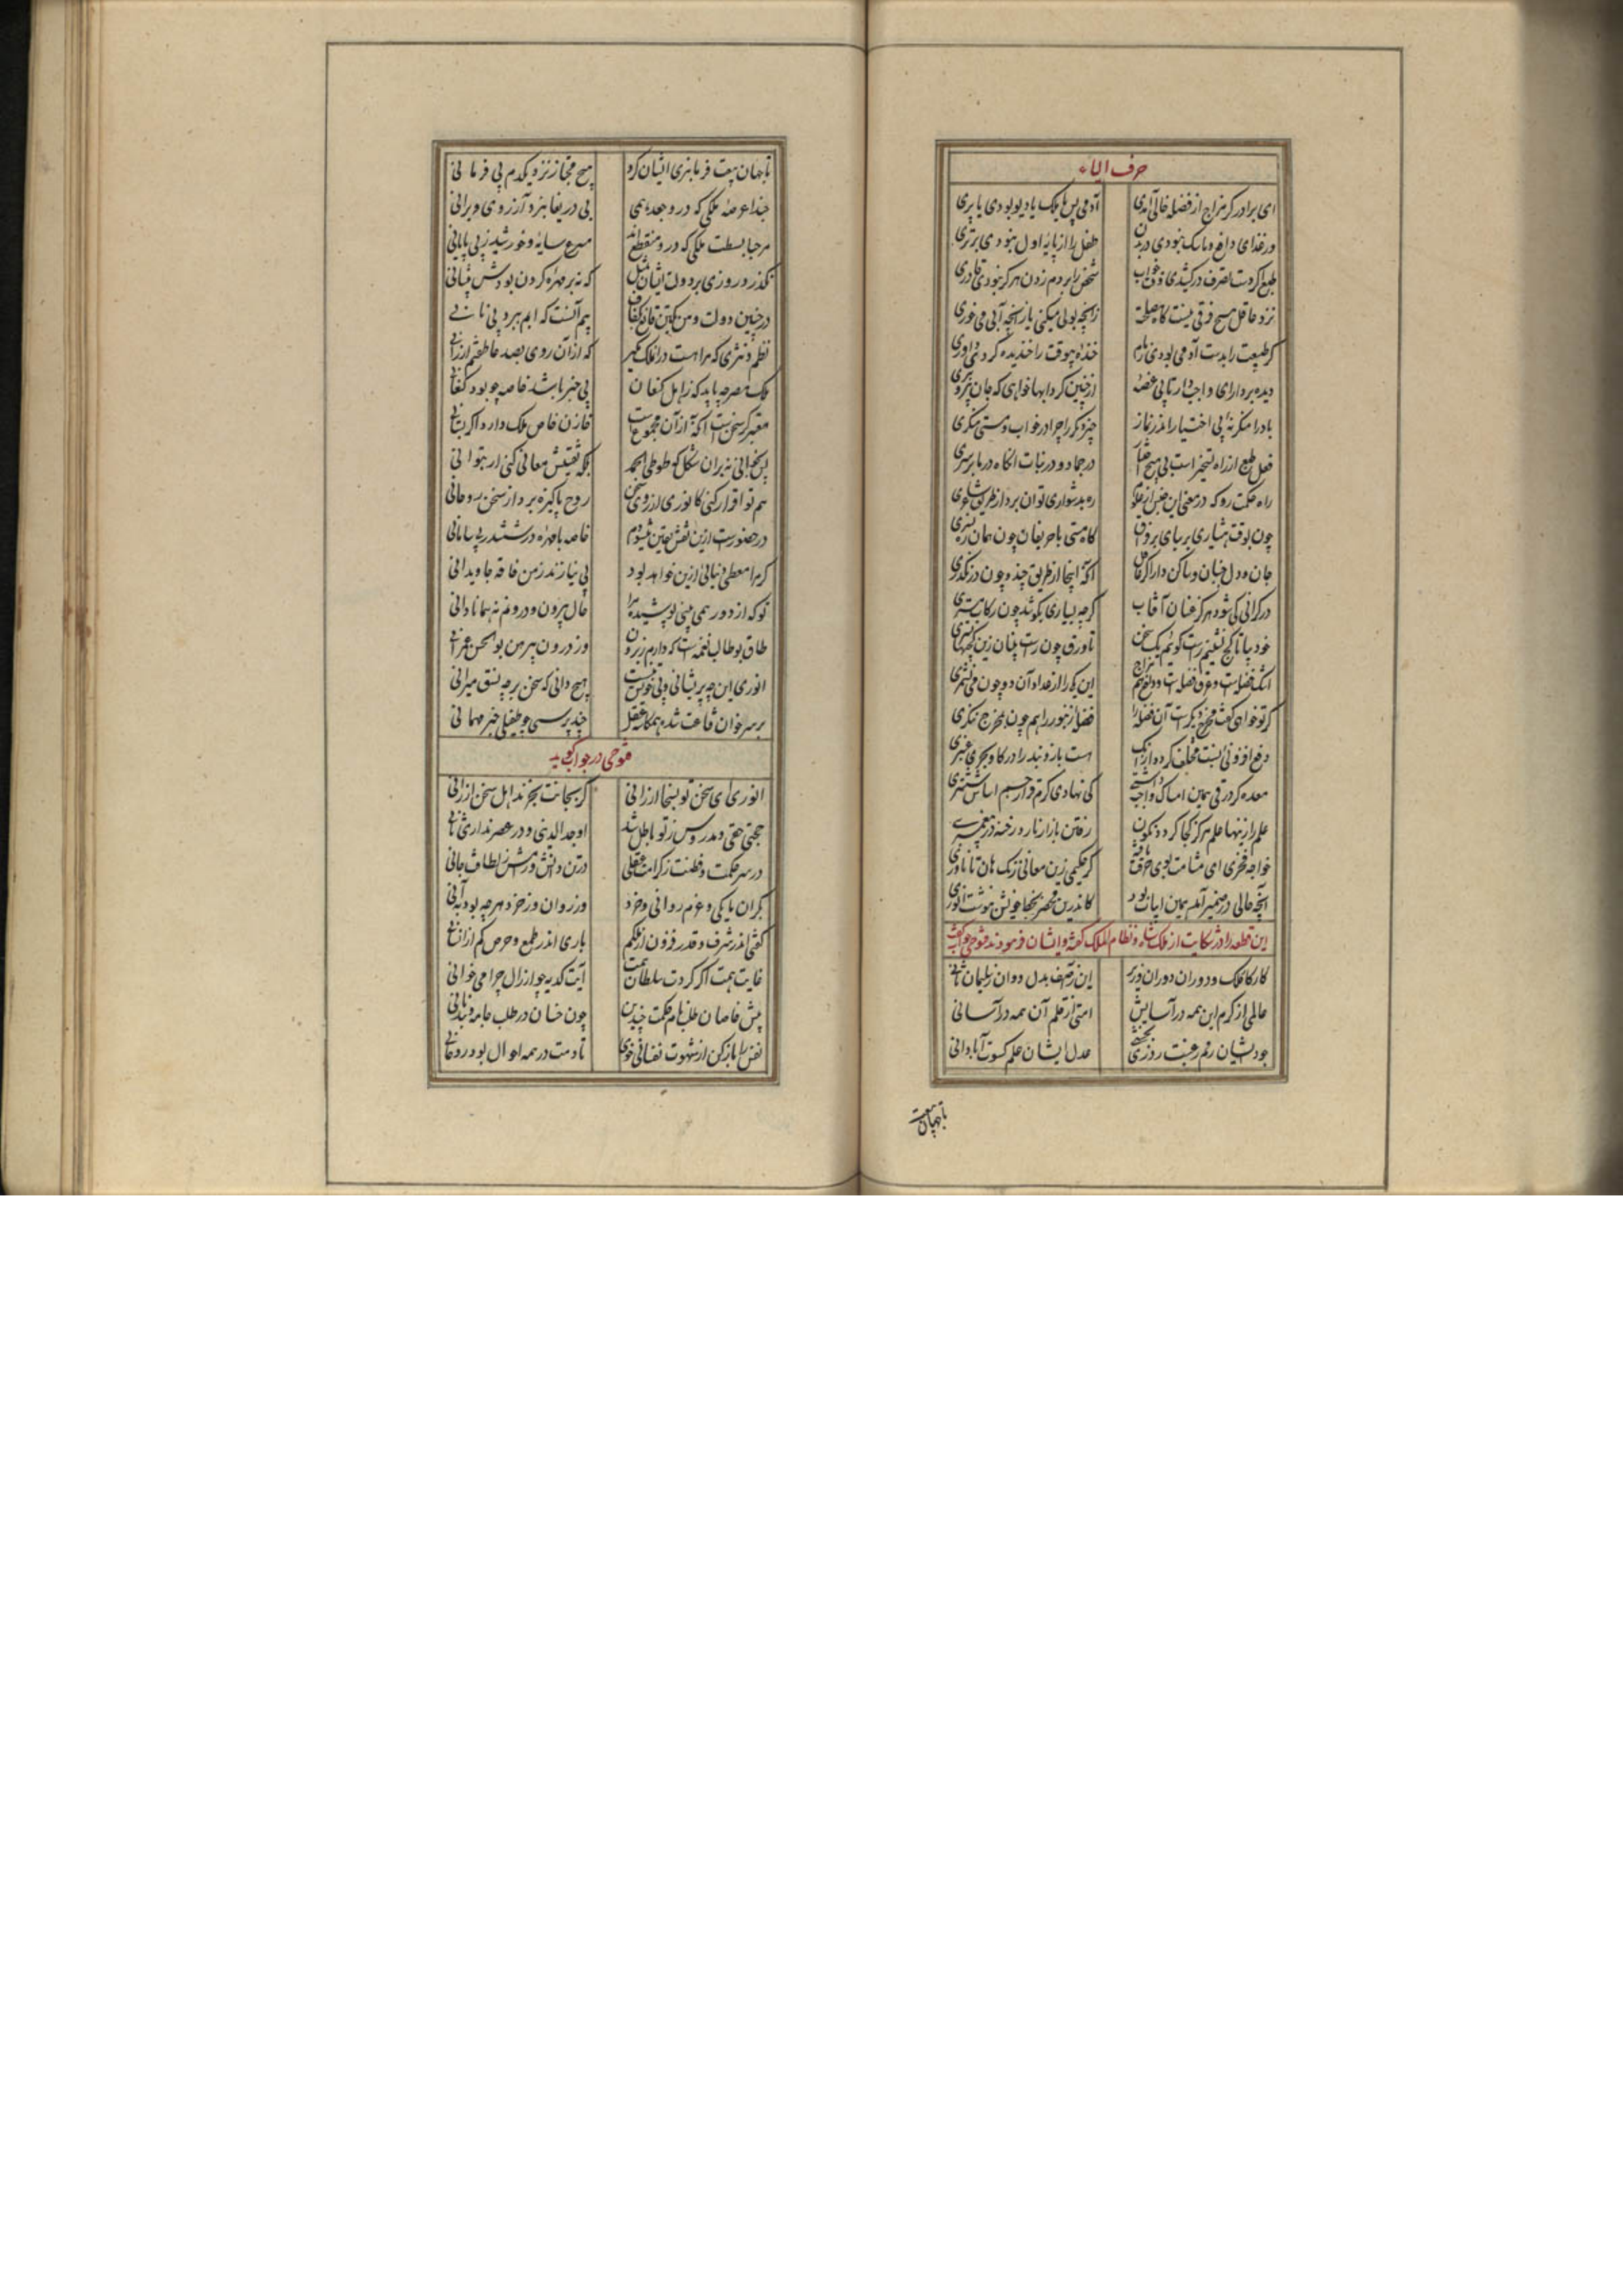 حرف الیاء
ای برادر گر مزاج از فضله خالی آمدی آدمی پس یا ملک یا دیو بودی یا پری
ور غذای دافع و ماسک نبودی در بدن طفل را از پایه اول نبودی برتری
طبع اگر دست تصرف درکشیدی شخص را بر دم زدن هرگز نبودی قادری
نزد عاقل هیچ فرقی نیست زانچه بولی میکنی یا زانچه آبی می خوری
گر طبیعت را بدست آدمی بودی زمام خنده بیوقت را خندیده گر داوری
دیده بردارای از چنین گردابها خواهی که جان بیرون بری
باد را منکر نه بی اختیار اندر نماز چیز دیگر را چرا در خواب و مستی منکری
فعل طبع از راه تسخیر است بی هیچ اختیار در جماد و در نبات آنگاه در ما بر سری
راه حکمت رو که در معنی این جنس از علوم ره بدشواری توان برد از طریق شاعری
چون بوقت هشیاری گاه مستی با حریفان چون همان ره نسپری
جان و دل خندان و ساکن دار اگر آنکه اینجا از طریق چند و چون در نگذری
در گرانی کی شود هرگز عنان آفتاب گرچه بسیاری بکوشد چون رکاب مشتری
خود بیا تا کج نشینیم راست گوئیم یک سخن تا ورق چون راست بینان زین کژیها بستری
اشک فضله است و عرق فضله است و در نوع مزاج این یکی را از عداد آن دو چون می نشمری
گر تو خواهی گفت مخرج دیگر است آن فضله را فضله زنبور را هم چون بمخرج ننگری
دفع افزونی است مختلف کرد و از آنک هست بازو بند را در گاو بحری عنبری
معده گر در قی همین امساک واجب داشتی کی نهادی کرم قز از جسم اساس ششتری
علم ازینها علم هرگز کجا گرد و نگون رفتن بازار نارد رخنه در پیغمبری
خواجه فخری ای گر حکیمی زین معانی زنگ هان تا ناوری
آنچه حالی در ضمیر آمد همین ابیات بود کاندرین محضر بخط خویش بنوشت انوری
این قطعه را در شکایت از ملکشاه و نظام الملک گفته و ایشان فرمودند فتوحی جواب گفت
کار کار ملک و دوران دوران وزیر این ز آصف بدل و وان ز سلیمان ثانی
عالمی از کرم این همه در آسایش امتی از قلم آن همه در آسانی
جودشان رقم رغبت روزی بخشی عدل ایشان علم کسوت آبادانی
تا جهان بست
تا جهان بست فرمانبری ایشان کرد هیچ مختار نزد یکدم بی فرمانی
حبذا عرصه ملکی که درو جغد همی بی دریغا نبرد آرزوی ویرانی
مرحبا بسطت ملکی که درو منقطع اند مسرع سایه و خورشید ز بی پایانی
نگذرد روزی بر دولت ایشان بمثل که نه بر مهره گردن بودش پیشانی
در چنین دولت و من یکتن قانع بکفاف بیم آنست که آبم ببرد بی نانی
نظم و نثری که مرا هست در این ملک مگیر که از آن روی بصد عاطفتم ارزانی
ملک مصر چه باید که ز اهل کنعان بی خبر باشد خاصه چو بود کنعانی
معتبر گر سخن است آنکه از آن مجموع است خازن خاص ملک دارد اگر بستانی
پس نخوانی نه بر آن شکل که طوطی الحمد بلکه تفتیش معانی کنی ار بتوانی
هم تو اقرار کنی کانوری از روی سخن روح پاکیزه برد از سخن روحانی
در حضورست ازین نقش یقین میشنوم خاصه با مهره در ششدر بی سامانی
کرا معطی دنیائی ازین خواهد بود بی نیاز ند ز من فاقه جاویدانی
تو که از دور همی بینی پوشیده مرا حال بیرون و درونم نه همانا دانی
طاق بوطالب نعمه است که دارم ز برون وز درون پیرهن بوالحسن عمرانی
انوری این چه پریشانی و بی خویشی است هیچ دانی که سخن بر چه نسق میرانی
بر سر خوان قناعت شده همکاسه عقل چند پرسی چو طفیلی خبر مهمانی
فتوحی در جواب گوید
انوری ای سخن تو بسخا ارزانی گر بجانت بخرند اهل سخن ارزانی
حجتی حقی و مدروس ز تو باطل شد اوحد الدینی و در عصر نداری ثانی
در سر حکمت و فطنت ز کرامت عقلی در تن دانش و رامش ز لطافت جانی
بگران ما یکی و غم روانی و خرد وز روان وز خرد هر چه بود به آنی
گفتی اندر شرف و قدر فزون از ملکم باری اندر طمع و حرص کم از انسانی
غایت همت اگر کردت سلطان همت آیت کدیه چو ارذال چرا می خوانی
پیش خاصان طلب نام حکمت چندین چون خسان در طلب جامه و بند نانی
نفس را باز کن از شهوت نفسانی خوی تا دمت در همه احوال بود روحانی